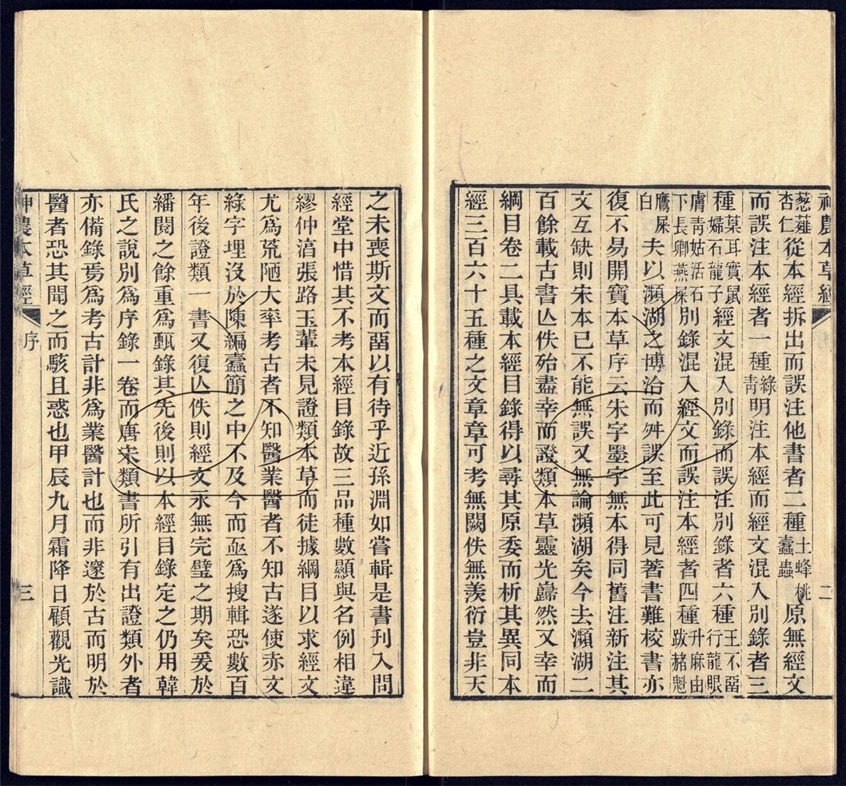 神農本草經
二
葱薤杏仁從本經拆出而誤注他書者二種土蜂桃蠹蟲原無經文
而誤注本經者一種綠青明注本經而經文混入別錄者三
種葈耳實鼠婦石龍子經文混入別錄而誤注別錄者六種王不留行龍眼
膚青姑活石下長卿燕屎別錄混入經文而誤注本經者四種升麻由跋赭魁
鷹屎白夫以瀕湖之博洽而舛誤至此可見著書難校書亦
復不易開寶本草序云朱字墨字無本得同舊注新注其
文互缺則宋本已不能無誤又無論瀕湖矣今去瀕湖二
百餘載古書亾佚殆盡幸而證類本草靈光歸然又幸而
綱目卷二具載本經目錄得以尋其原委而析其異同本
經三百六十五種之文章章可考無闕佚無羨衍豈非天
之未喪斯文而留以有待乎近孫淵如嘗輯是書刊入問
經堂中惜其不考本經目錄故三品種數顯與名例相違
繆仲湻張路玉輩未見證類本草而徒據綱目以求經文
尤爲荒陋大率考古者不知醫業醫者不知古遂使赤文
綠字埋沒於陳編蠹簡之中不及今而亟爲搜輯恐數百
年後證類一書又復亾佚則經文永無完璧之期矣爰於
繙閱之餘重爲甄錄其先後則以本經目錄定之仍用韓
氏之說別爲序錄一卷而唐宋類書所引有出證類外者
亦備錄焉爲考古計非爲業醫計也而非邃於古而明於
醫者恐其聞之而駭且惑也甲辰九月霜降日顧觀光識
神農本草經
序
三